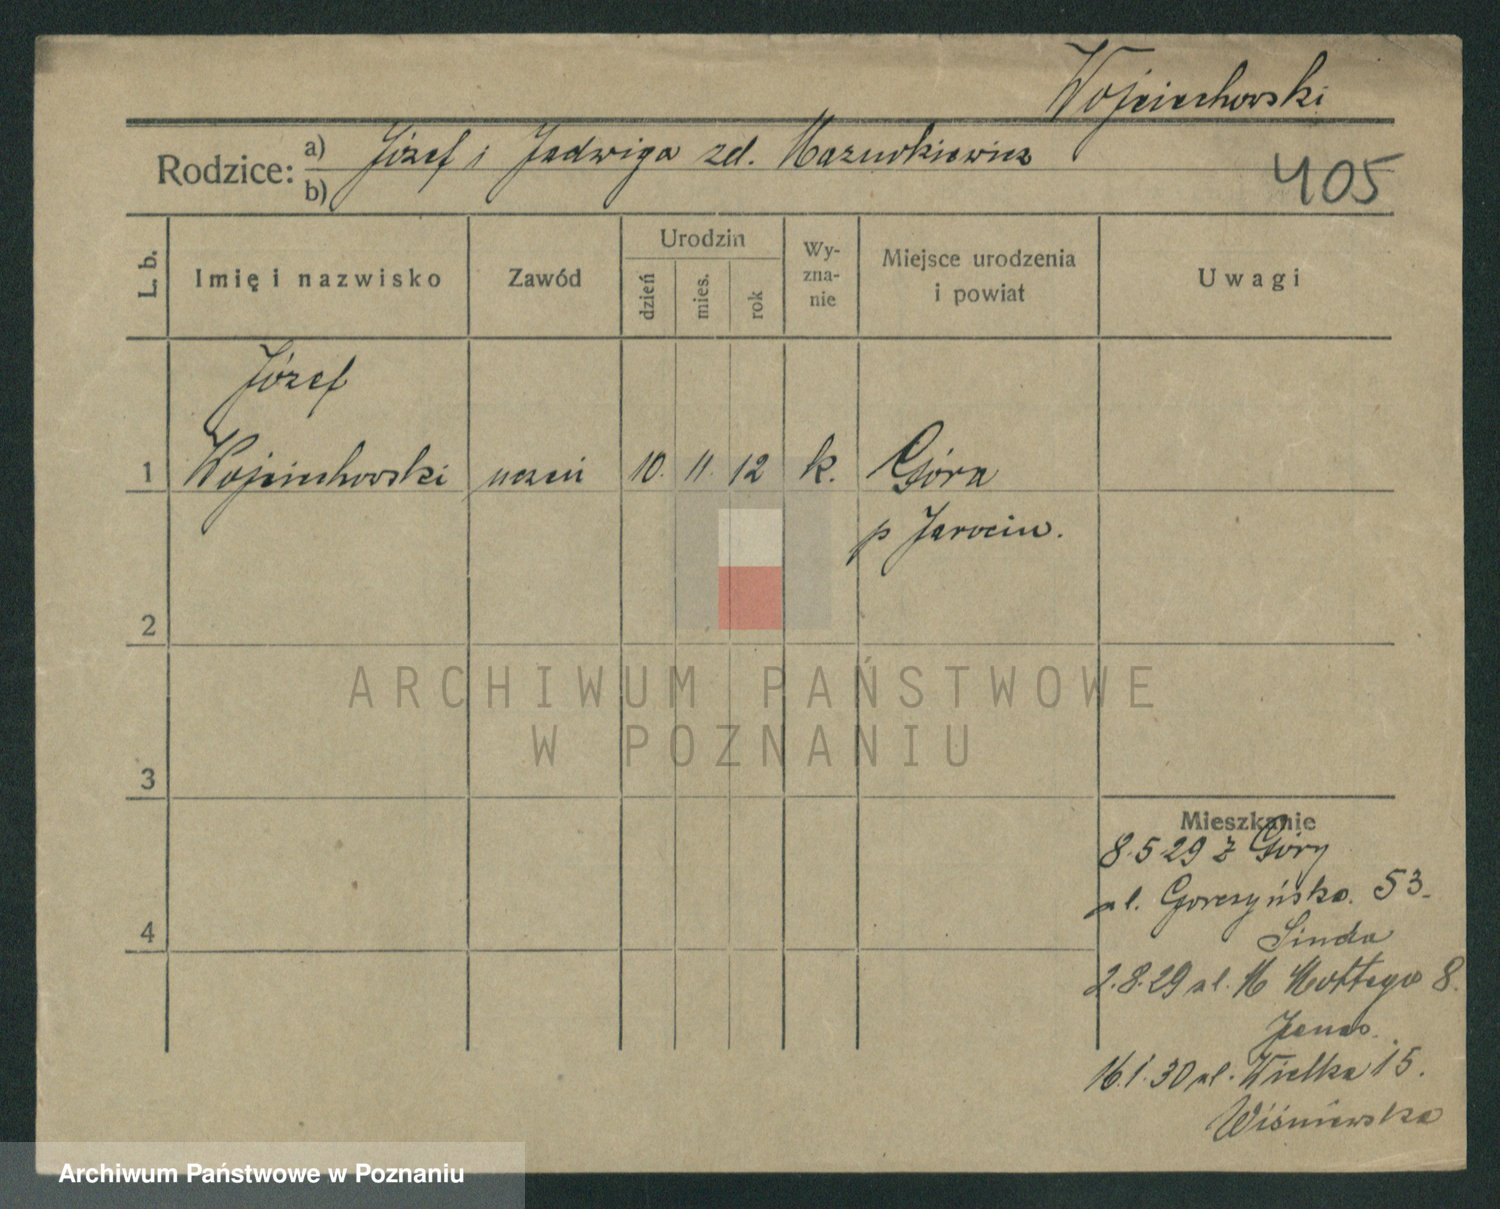 Wojciechowski
Rodzice: a) Józef i Jadwiga zd. Mazurkiewicz
b)
405
L. b.
Imię i nazwisko
Zawód
Urodzin
dzień
mies.
rok
Wy-
zna-
nie
Miejsce urodzenia
i powiat
Uwagi
Józef
1 Wojciechowski uczeń 10. 11. 12 k. Góra
p Jarocin.
2
3
4
Mieszkanie
8.5 29 z Góry
ul. Gorczyńska. 53.
Linda
2.8.29 ul. M Mottego 8.
16.1.30 ul. Wielka 15.
Wiśniewska
ARCHIWUM PAŃSTWOWE
W POZNANIU
Archiwum Państwowe w Poznaniu